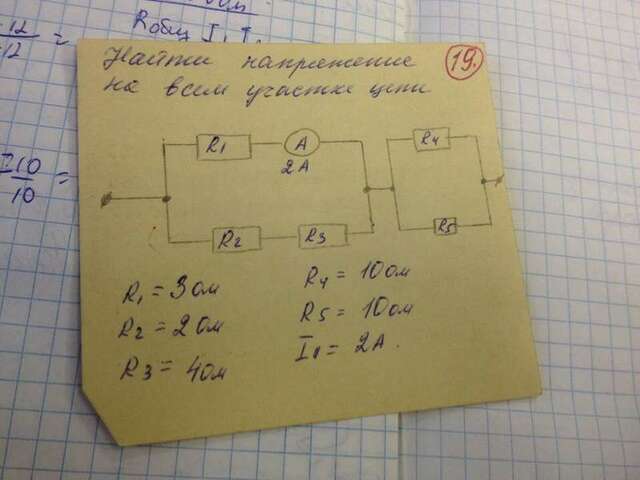 Rобщ
12
12
=
Найти напряжение
19.
на всем участке цепи
I10
10
=
R1
A
2A
R4
R2
R3
R5
R1 = 3 ом
R2 = 2 ом
R3 = 4 ом
R4 = 10 ом
R5 = 10 ом
I1 = 2A.